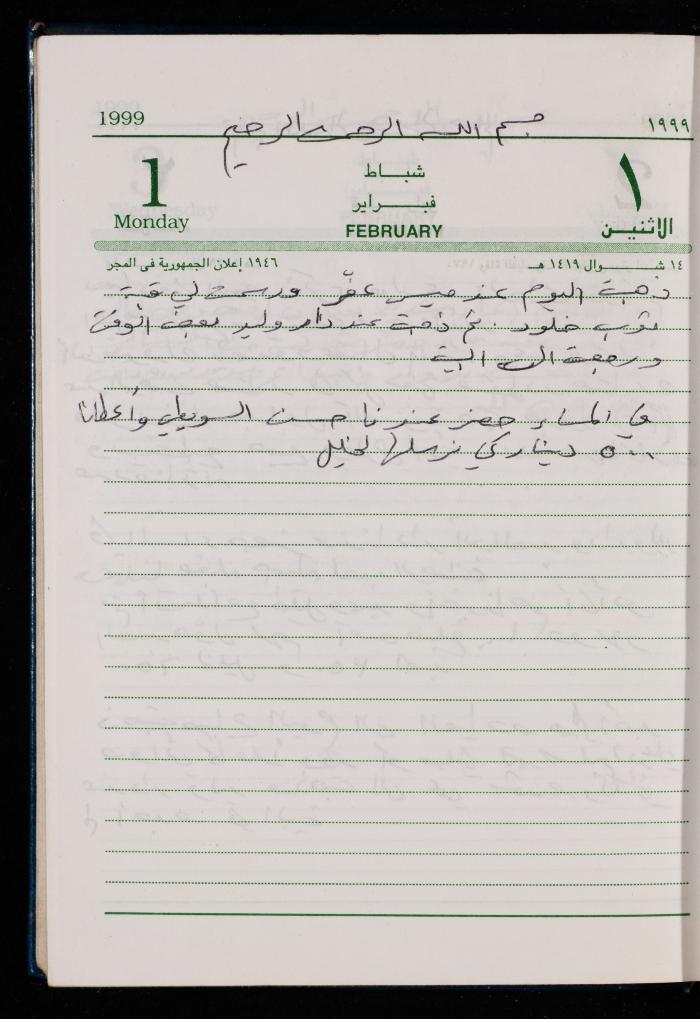 1999
بسم الله الرحمن الرحيم
١٩٩٩
1
Monday
شباط
فبراير
FEBRUARY
١
الاثنين
١٤ شوال ١٤١٩ هـ
١٩٤٦ إعلان الجمهورية في المجر
ذهبت اليوم عند ميس عفر ورسمت لي قبة
ثوب خلود. ثم ذهبت عند دار وليد بعض الوقت
ورجعت الى البيت
في المساء حضر عندنا حسن السويطي وأعطانا
٥٠٠ دينار كي نرسلها لخليل